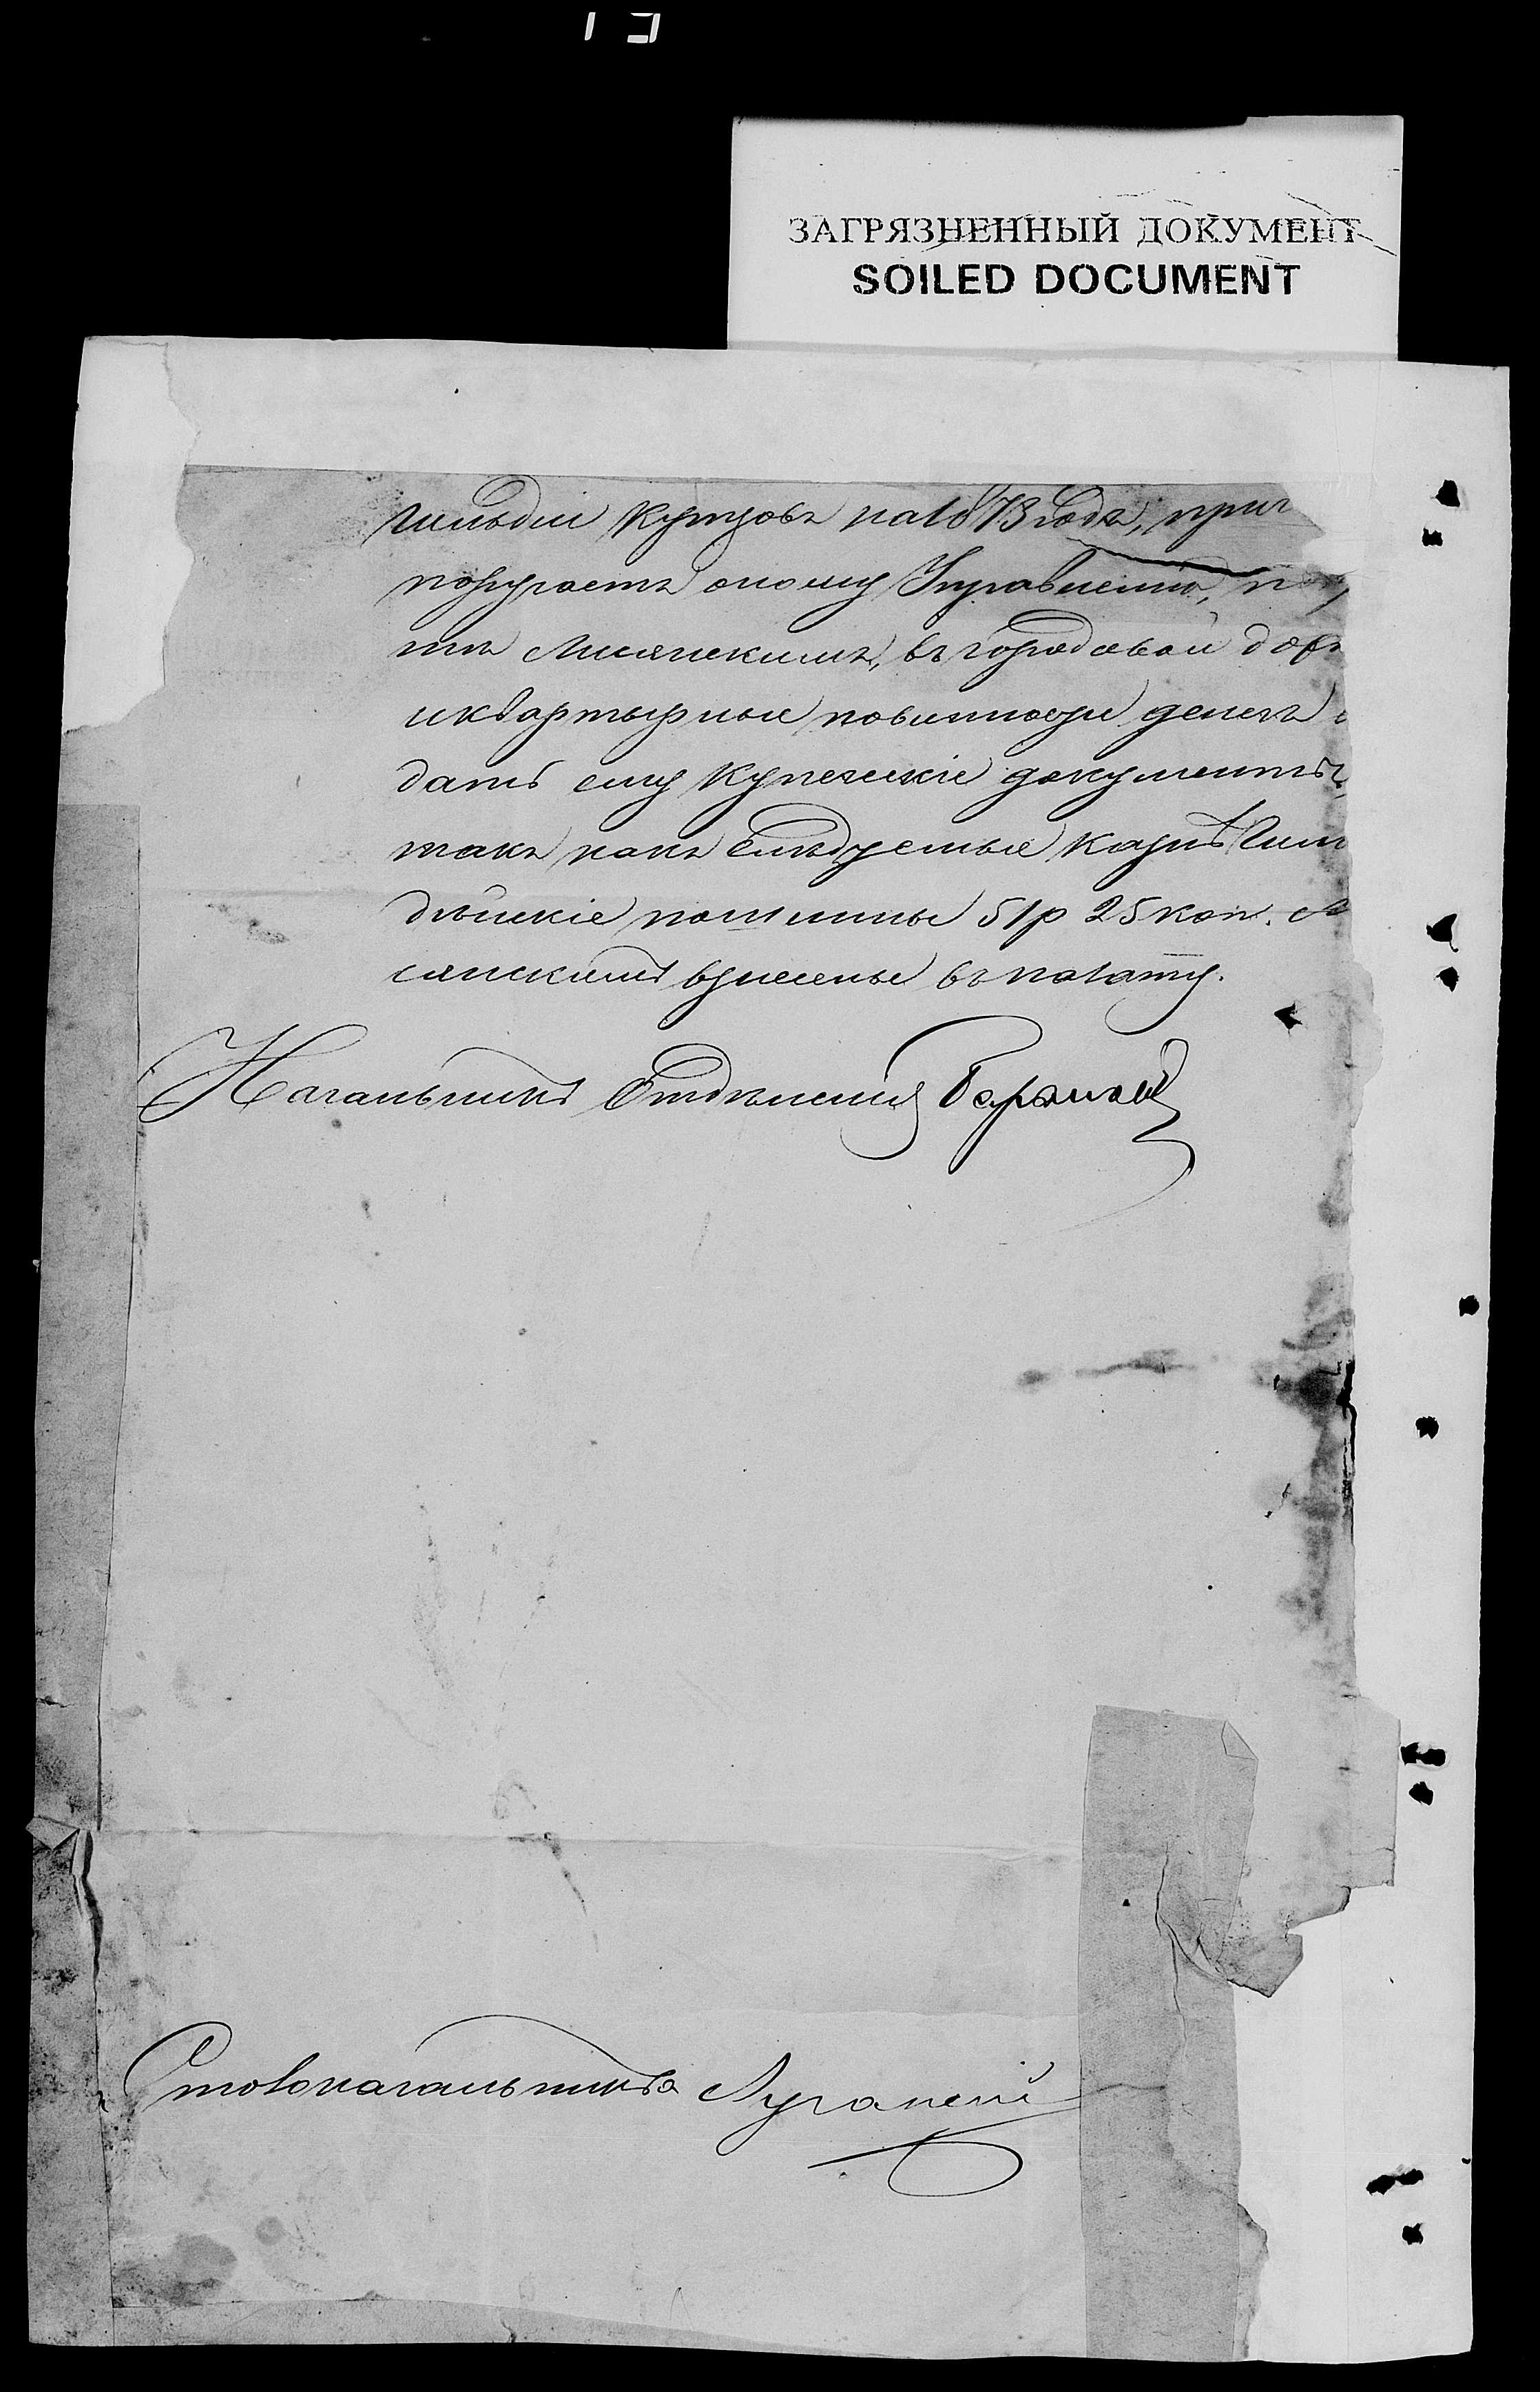 ЗАГРЯЗНЕННЫЙ ДОКУМЕНТ
SOILED DOCUMENT
гильдіи купцовъ на 1873 годъ, при
поручаетъ оному Управленію, по
тѣ Лисянскимъ, въ городской дох
и квартырные повинности денегъ
дать ему купеческіе документы,
такъ какъ слѣдуемые казнѣ Гил
дѣйскіе пошлины 51 р 25 коп. Ли
сянскимъ взнесены въ палату.
Начальникъ Отдѣленія
Столоначальникъ